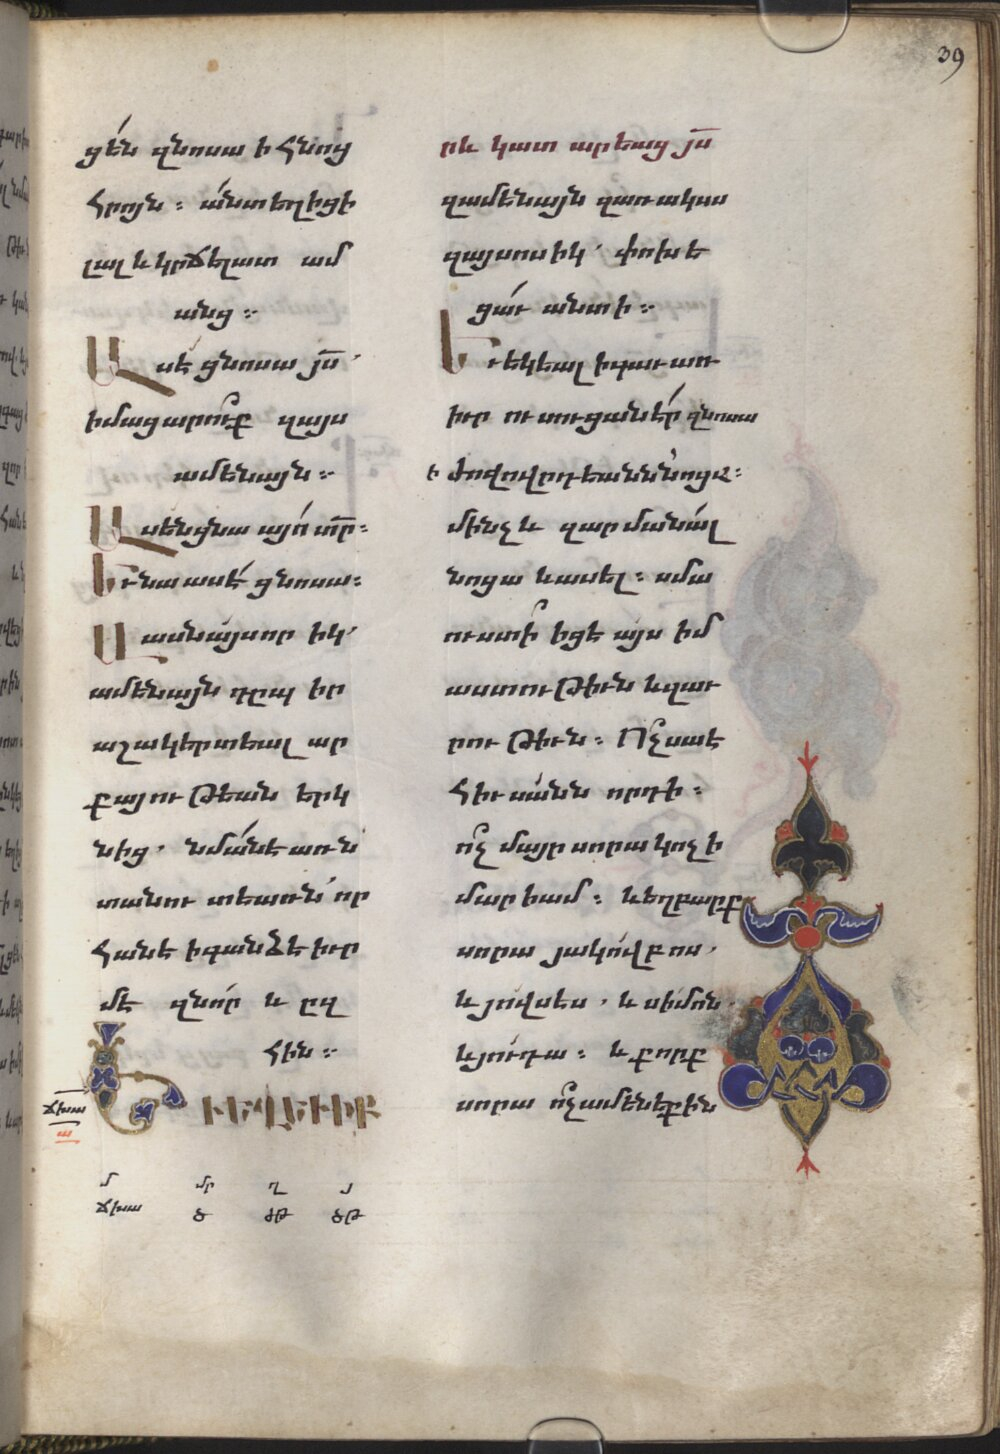 39
ցեն զնոսա ի հնոց
հրոյն ։ անտ եղիցի
լալ և կրճել ատ ամ
անց ։
Ասէ ցնոսա յս՝
իմացարուք զայս
ամենայն ։
Ասեն ցնա այո տր ։
Եւ նա ասէ ցնոսա ։
Վասն այսորիկ՝
ամենայն դըպ իր
աշակերտեալ ար
քայութեան երկ
նից ՝ նման է առն
տանու տեառն որ
հանէ ի գանձէ իւր
մէ զնոր և ըզ
հին ։
ճխա
ա
Եւ եղև իբ
մ մր ղ յ
ճխա
րև կատարեաց յս
զամենայն զառակսս
զայսոսիկ՝ փոխե
ցաւ անտի ։
Եւ եկեալ ի գաւառ
իւր ուսուցանէր զնոսա
ի ժողովրդեանն նոցա ։
մինչև զարմանալ
նոցա և ասել ։ սմա
ուստի իցէ այս իմ
աստութիւն և զաւ
րութիւն ։ Ոչ սա է
հիւսանն որդի ։
ոչ մայր սորա կոչի
մարիամ ։ և եղբարք
սորա յակովբոս ՝
և յովսէս ՝ և սիմոն ՝
և յուդա ։ և քորք
սորա ոչ ամենեքին